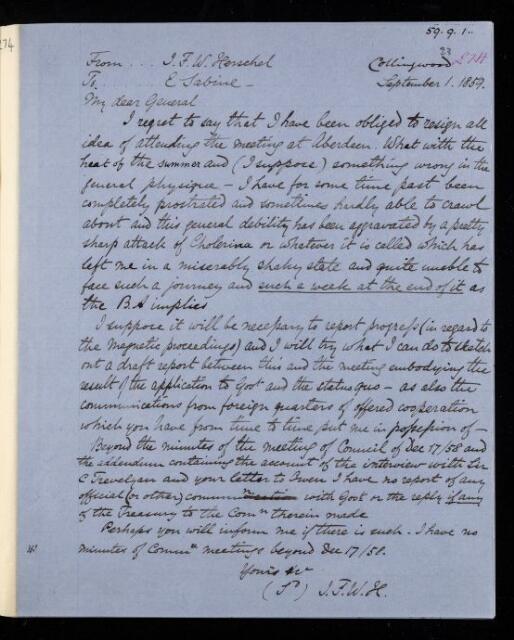 274
59.9.1.
23
274
From ... J.F.W. Herschel
Collingwood
To ........ E Sabine –
September 1. 1859.
My dear General
I regret to say that I have been obliged to resign all
idea of attending the meeting at Aberdeen. What with the
heat of the summer and (I suppose) something wrong in the
general physique – I have for some time past been
completely prostrated and sometimes hardly able to crawl
about and this general debility has been aggravated by a pretty
sharp attack of Cholerina or whatever it is called which has
left me in a miserably shaky state and quite unable to
face such a journey and such a week at the end of it as
the B.A implies
I suppose it will be necessary to report progress (in regard to
the magnetic proceedings) and I will try what I can do to sketch
out a draft report between this and the meeting embodying the
result of the application to Govt and the status quo – as also the
communications from foreign quarters of offered cooperation
which you have from time to time put me in possession of –
Beyond the minutes of the meeting of Council of Dec 17/58 and
the addendum containing the account of the interview with Sir
C Trevelyan and your letter to Owen I have no report of any
official (or other) communication with Govt or the reply if any
of the Treasury to the Comn therein made
Perhaps you will inform me if there is such. I have no
minutes of Commn meetings beyond Dec 17/58.
Yours &c
(Sd) J.F.W.H.